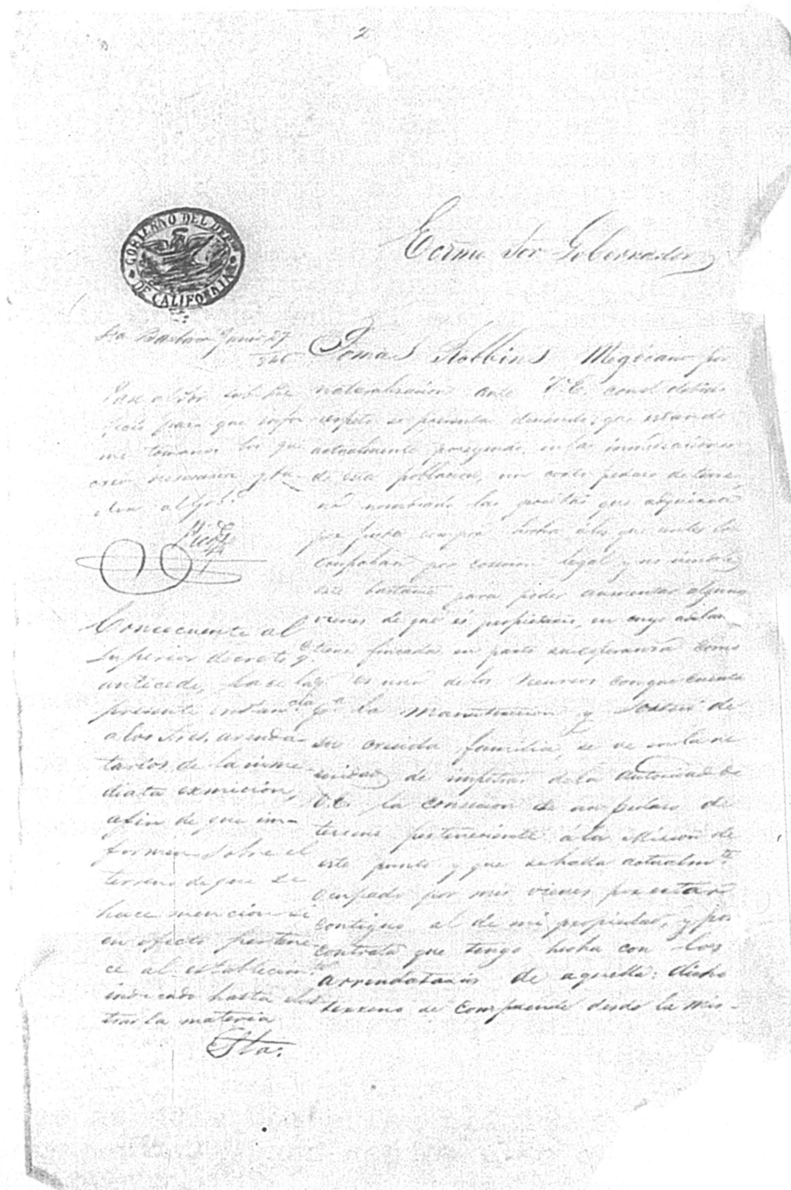 2
GOBIERNO DEL DEP.
DE CALIFORNIA
Ecsmo Sor Gobernador
Sta Barbara Junio 27
846
Pase al Sor sub pre
fecto para que infor
me tomando los que
crea necesarios y de
vuelva al Gob.
Pico
Concecuente al
Superior decreto q.e
antecede, pase la
presente instancia
a los Sres. arrenda-
tarios de la inme-
diata exmicion,
afin de que in-
formen sobre el
terreno de que se
hace mencion si
en efecto pertene-
ce al establecim.to
indicado hasta ilus
trar la materia
Sta.
Tomas Robbins Megicano por
naturalisacion ante V.E. con el debido
respeto se presenta diciendo: que estando
actualmente poseyendo, en las inmediaciones
de esta poblacion, un corto pedaso de terre-
no nombrado las positas que adquirió
por justa compra hecha á los que antes lo
ocupaban por cesion legal y no siendole
este bastante para poder aumentar algunos
vienes de que es propietario, en cuyo adelanto
tiene fincada en parte su esperanza como
q.e es uno de los recursos con que cuenta
p.a la manutencion y sosten de
su crecida familia, se ve en la ne
cesidad de impetrar de la autoridad de
V.E. la consecion de un pedaso de
terreno perteneciente á la Mision de
este punto y que se halla actualm.te
ocupado por mis vienes por estar
contiguo al de mi propiedad, y por
contrata que tengo hecha con los
arrendatarios de aquella: dicho
terreno se comprende desde la mis-